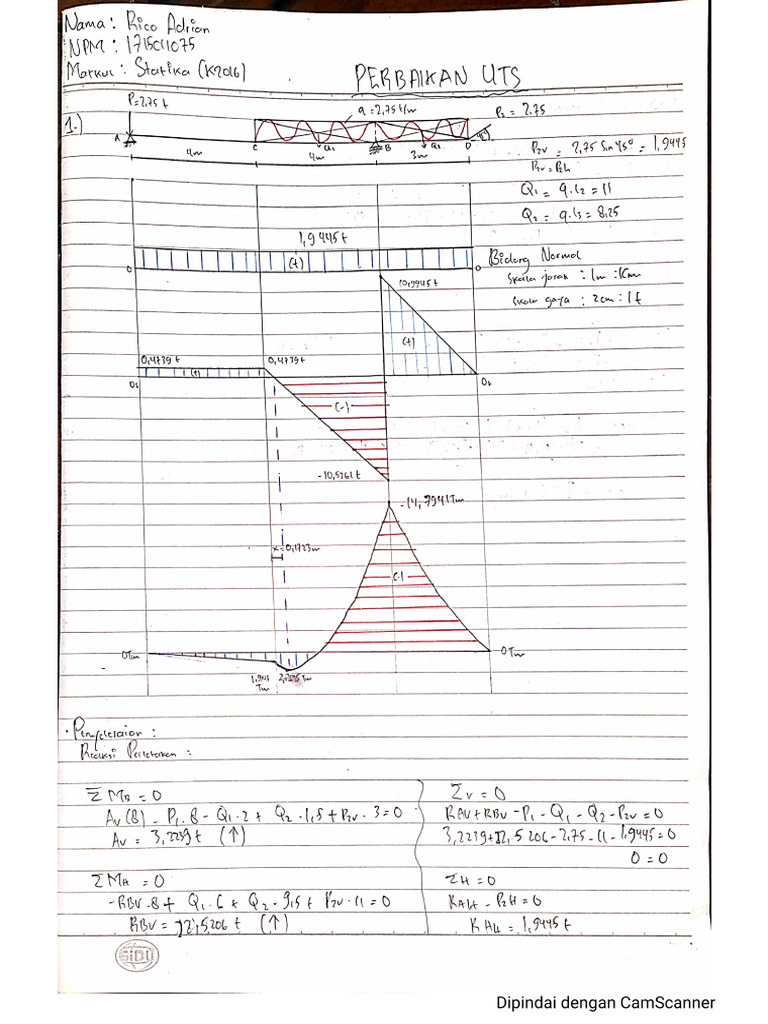 Nama : Rico Adrian
NPM : 1715011075
Matkul : Statika (K2016)
PERBAIKAN UTS
1.)
P=2,75 t
q = 2,75 t/m
P2 = 2,75
A
C
Q1
B
Q2
D
45°
4m
4m
3m
P2v = 2,75 Sin 45° = 1,9445
P2v = P2h
Q1 = q.l2 = 11
Q2 = q.l3 = 8,25
1,9445 t
(+)
0
0
Bidang Normal
Skala jarak : 1m :
Skala gaya : 2cm : 1 t
10,9945 t
(+)
0,4739 t
0,4739 t
(+)
0t
0t
(-)
-10,5261 t
-14,7941 Tm
x=0,1723m
(-)
0Tm
0 Tm
Tm
Penyelesaian :
Reaksi Perletakan :
ΣMB = 0
Av (8) - P1 . 8 - Q1 . 2 + Q2 . 1,5 + P2v . 3 = 0
Av = 3,2239 t (↑)
ΣMA = 0
-RBV . 8 + Q1 . 6 + Q2 . 9,5 + P2v . 11 = 0
RBV = 5206 t (↑)
Σv = 0
RAV + RBV - P1 - Q1 - Q2 - P2v = 0
5206 - 2,75 - 11 - 1,9445 = 0
0 = 0
ΣH = 0
RAH - P2H = 0
RAH = 1,9445 t
SIDU
Dipindai dengan CamScanner